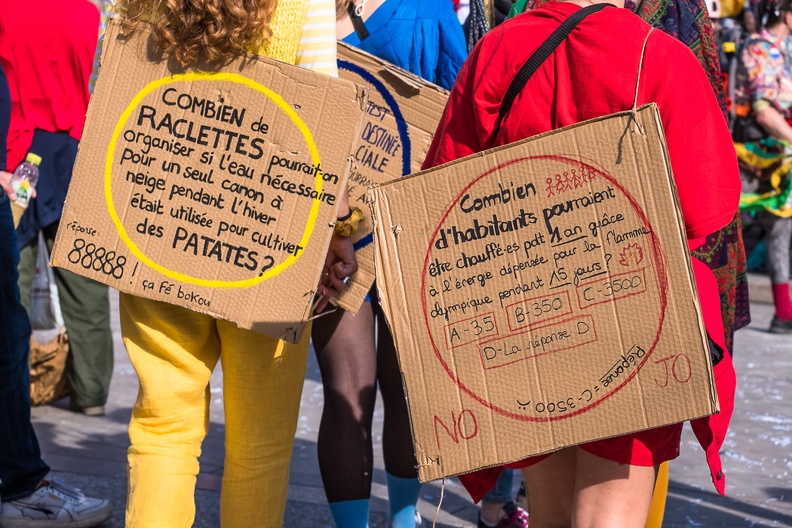 COMBIEN de
RACLETTES pourrait-on
organiser si l'eau nécessaire
pour un seul canon à
neige pendant l'hiver
était utilisée pour cultiver
des PATATES?
réponse:
88888 !
ça fé bokou
EST
DESTINÉE
CIALE
Commbien
d'habitants pourraient
être chauffé·es pdt 1 an grâce
à l'énergie dépensée pour la flamme
olympique pendant 15 jours?
A-35
B-350
C-3500
D-La réponse D
Réponse = C-3500
NO
JO